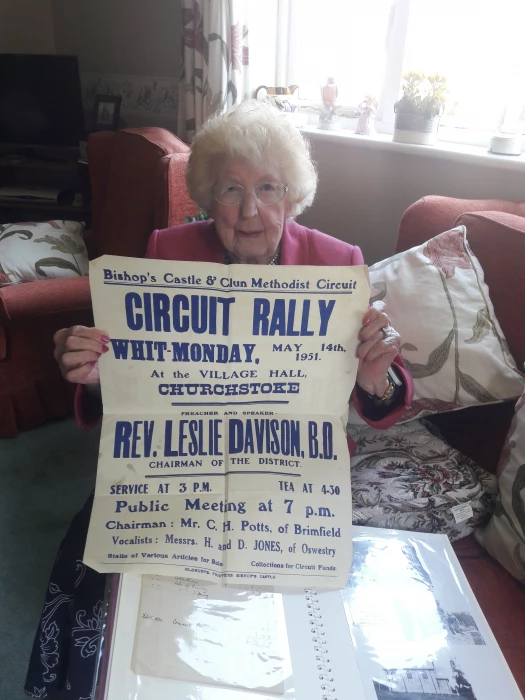 Bishop's Castle & Clun Methodist Circuit
CIRCUIT RALLY
WHIT-MONDAY, MAY 14th, 1951.
At the VILLAGE HALL,
CHURCHSTOKE
PREACHER AND SPEAKER
REV. LESLIE DAVISON, B.D.
CHAIRMAN OF THE DISTRICT.
SERVICE AT 3 P.M. TEA AT 4-30
Public Meeting at 7 p.m.
Chairman : Mr. C. H. Potts, of Brimfield
Vocalists : Messrs. H. and D. JONES, of Oswestry
Stalls of Various Articles for Sale Collections for Circuit Funds.
PRINTERS BISHOP'S CASTLE